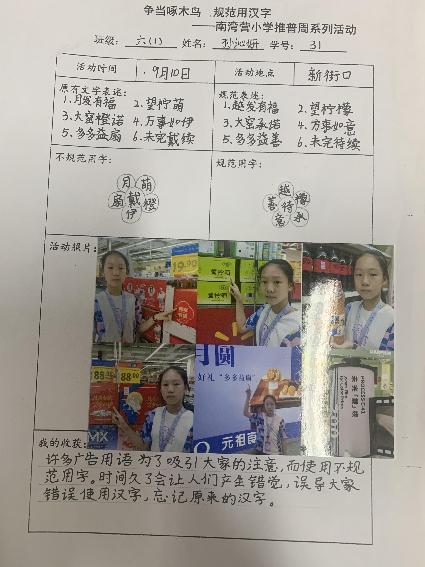 争当啄木鸟 规范用汉字
——南湾营小学推普周系列活动
班级：六(1) 姓名：孙沁妍 学号：31
活动时间 9月10日 活动地点 新街口
原有文字表述：
1.月发有福 2.望柠萌
3.大窑橙诺 4.万事如伊
5.多多益扇 6.未完戴续
规范表述：
1.越发有福 2.望柠檬
3.大窑承诺 4.万事如意
5.多多益善 6.未完待续
不规范用字：
月 萌
扇 戴 橙
伊
规范用字：
越 檬
善 待
意 承
活动照片：
19.90
88.00
88.00
月圆
好礼“多多益扇”
元祖食
我的收获：
许多广告用语为了吸引大家的注意，而使用不规
范用字。时间久了会让人们产生错觉，误导大家
错误使用汉字，忘记原来的汉字。